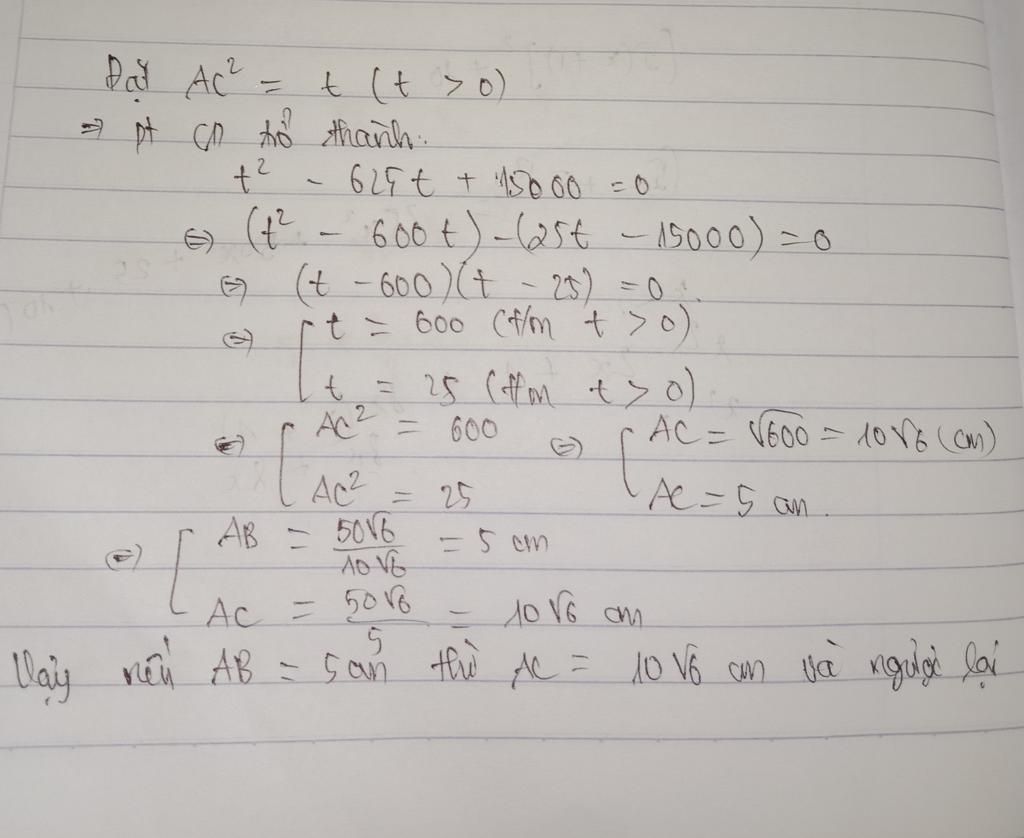 Đặt AC² = t (t > 0)
⇒ pt cn trở thành:
t² - 625t + 15000 = 0
⇔ (t² - 600t) - (25t - 15000) = 0
⇔ (t - 600)(t - 25) = 0.
⇔ [ t = 600 (t/m t > 0)
t = 25 (t/m t > 0)
⇔ [ AC² = 600 ⇔ [ AC = √600 = 10√6 (cm)
AC² = 25 AC = 5 cm.
⇔ [ AB = 50√6/10√6 = 5 cm
AC = 50√6/5 = 10√6 cm
Vậy nếu AB = 5 cm thì AC = 10√6 cm và ngược lại